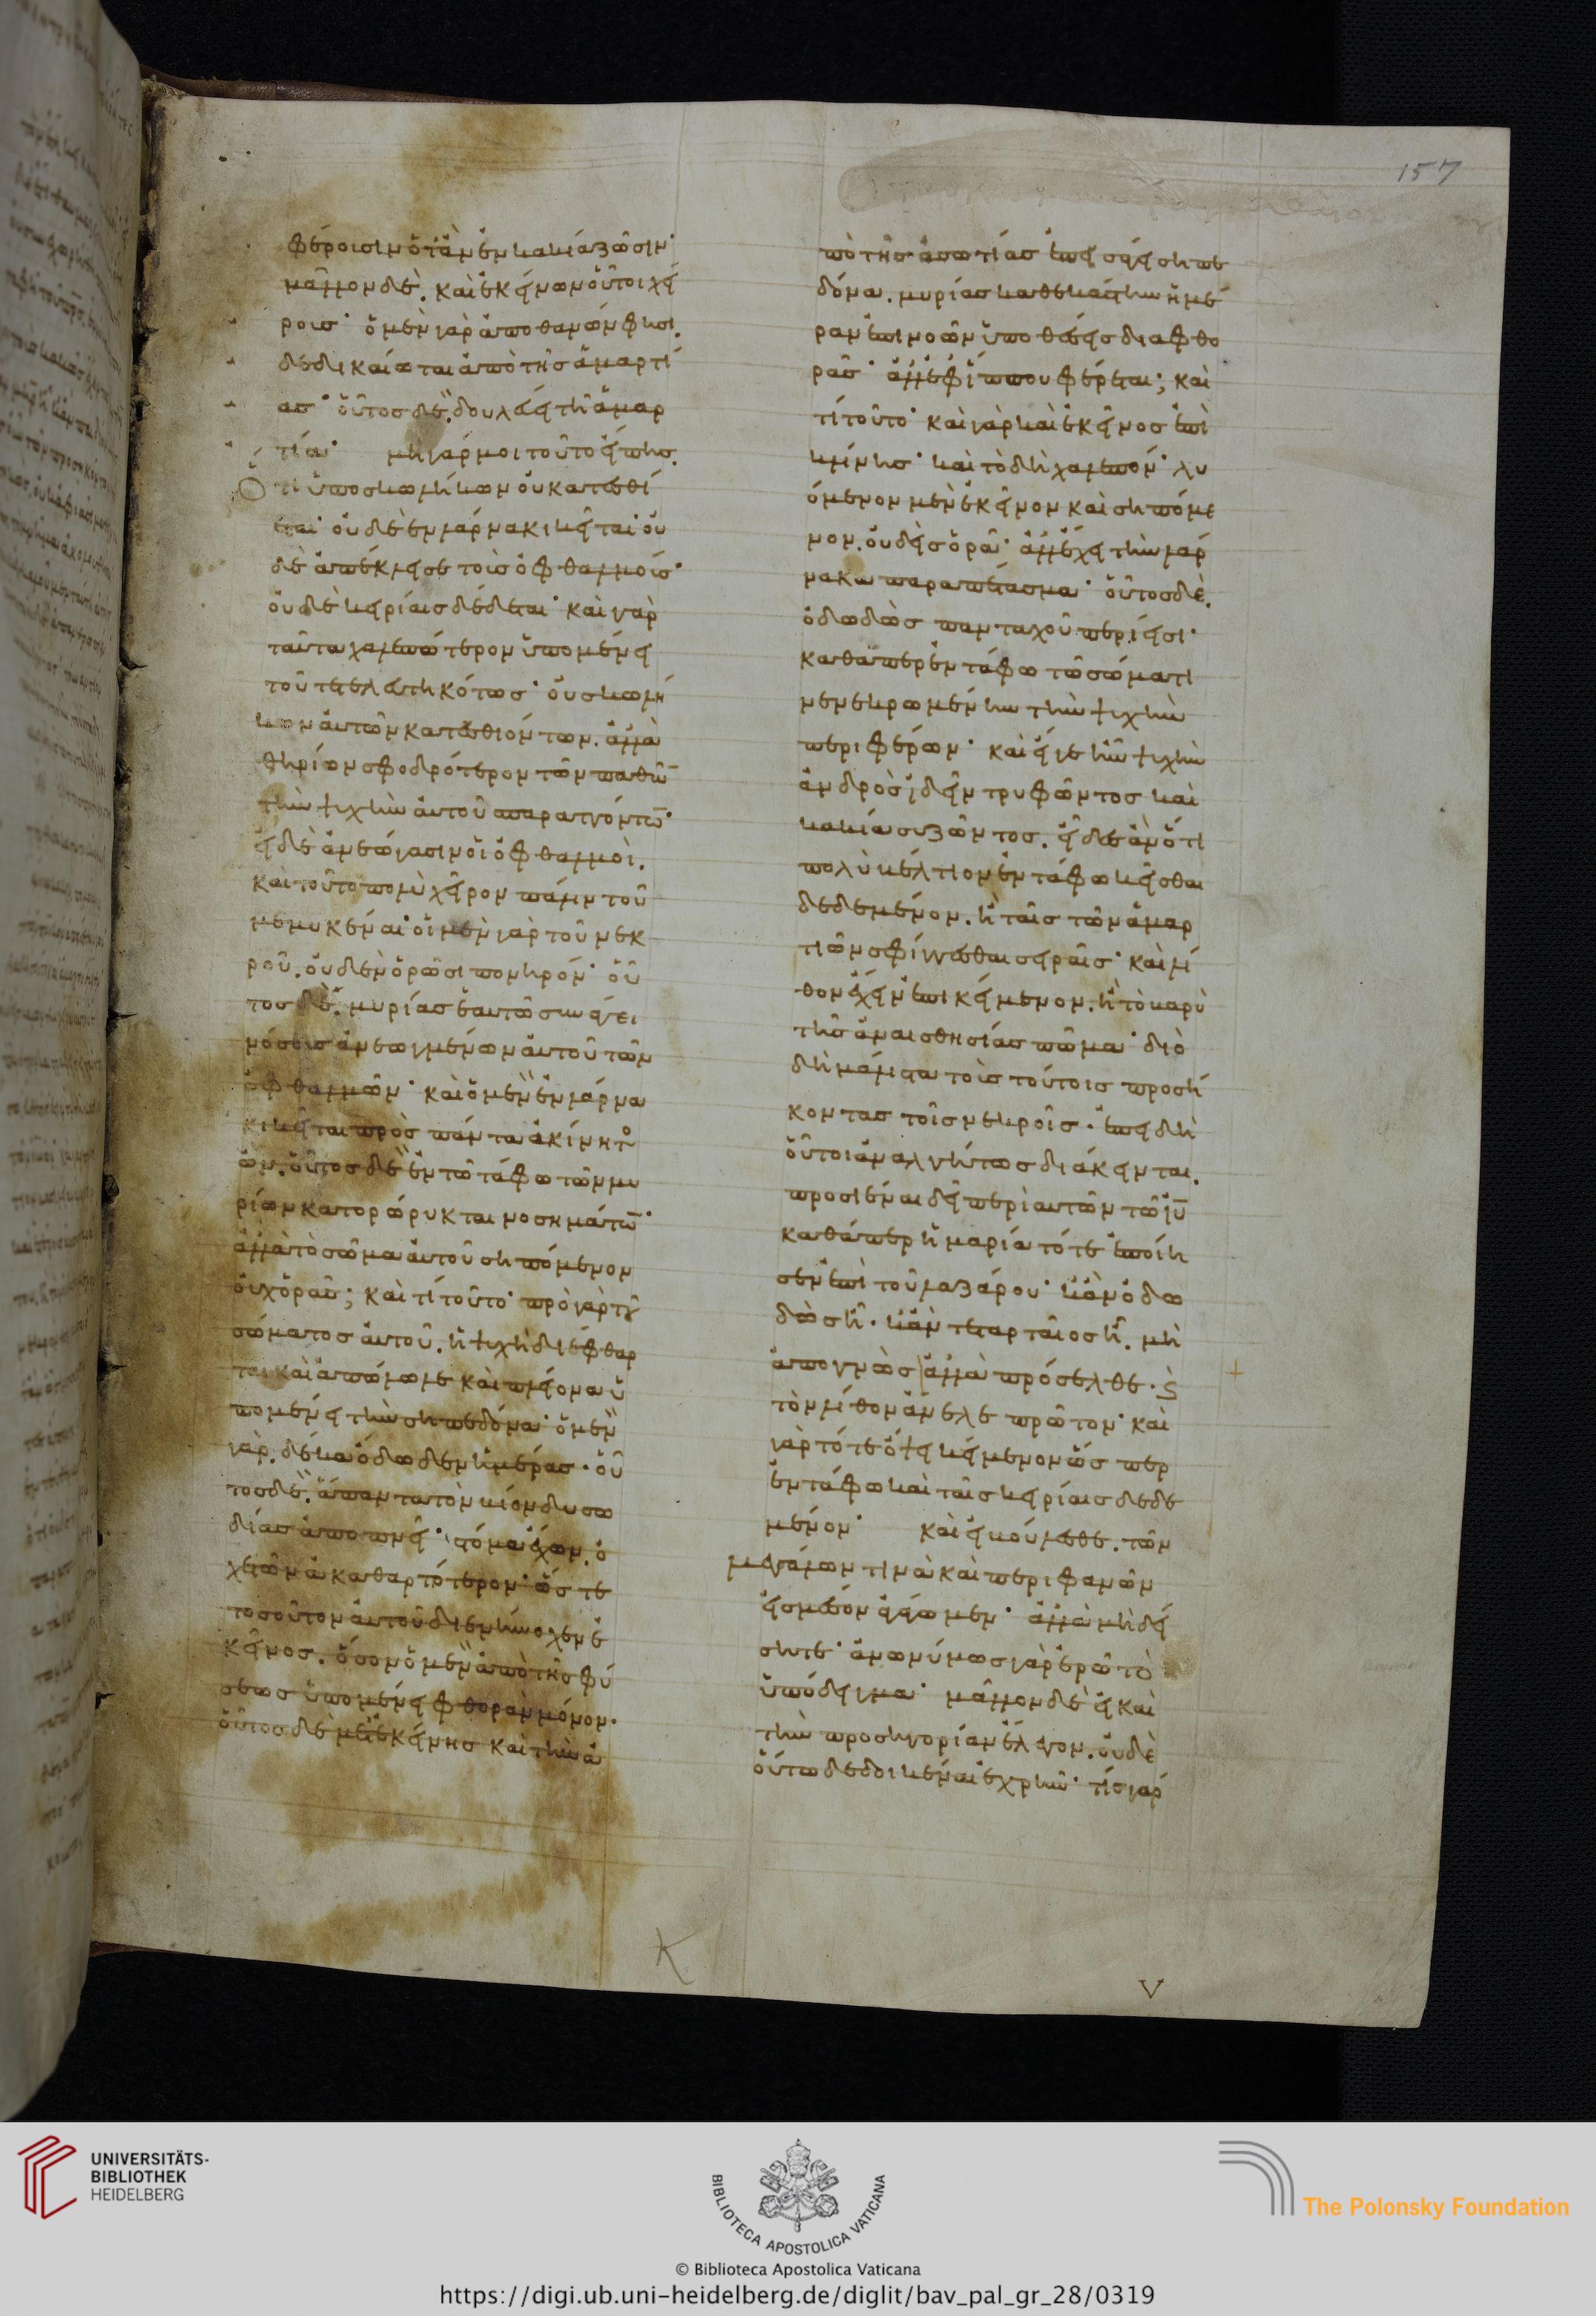 φέροισιν ὅταν ἐν κακία ζῶσιν·
μᾶλλον δὲ, καὶ ἐκείνων οὗτοι χεί
ροισ· ὁ μὲν γὰρ ἀποθανών φησι,
δεδικαίωται ἀπὸ τῆσ ἁμαρτί
ασ· οὗτοσ δὲ, δουλεύει τῆ ἁμαρ
τία· μὴ γάρ μοι τοῦτο εἴπησ,
ὅτι ὑπὸ σκωλήκων οὐ κατεσθί
εται· οὐδὲ ἐν λάρνακι κεῖται· οὐ
δὲ ἀπέκλεισε τοὺσ ὀφθαλμούσ·
οὐδὲ κειρίαισ δέδεται· καὶ γὰρ
ταῦτα χαλεπώτερον ὑπομένει
τοῦ τετελευτηκότοσ· οὐ σκωλή
κων αὐτὸν κατεσθιόντων, ἀλλὰ
θηρίων σφοδρότερον τῶν παθῶ̅
τὴν ψυχὴν αὐτοῦ σπαραττόντω̅·
εἰ δὲ ἀνεώγασιν οἱ ὀφθαλμοὶ,
καὶ τοῦτο πολὺ χεῖρον πάλιν τοῦ
μεμυκέναι· οἱ μὲν γὰρ τοῦ νεκ
ροῦ, οὐδὲν ὁρῶσι πονηρόν· οὗ
τοσ δὲ, μυρίασ ἑαυτῶ συνάγει
νόσουσ ἀνεωγμένων αὐτοῦ τῶν
ὀφθαλμῶν· καὶ ὁ μὲν ἐν λάρνα
κι κεῖται πρὸσ πάντα ἀκίνητο
ὤν, οὗτοσ δὲ ἐν τῶ τάφω τῶν μυ
ρίων κατορώρυκται νοσημάτω̅·
ἀλλὰ τὸ σῶμα αὐτοῦ σηπόμενον
οὐχ ὁρᾶσ; καὶ τί τοῦτο· πρὸ γὰρ τοῦ
σώματοσ αὐτοῦ, ἡ ψυχὴ διέφθαρ
ται καὶ ἀπόλωλε καὶ πλείονα ὑ
πομένει τὴν σηπεδόνα· ὁ μὲν
γὰρ, δέκα ὄδωδεν ἡμέρασ· οὗ
τοσ δὲ, ἅπαντα τὸν βίον δυσω
δίασ ἀποπνεῖ· στόμα ἔχων, ὀ
χετῶν ἀκαθαρτότερον· ὥστε
τοσοῦτον αὐτοῦ διενήνοχεν ἐ
κεῖνοσ, ὅσον ὁ μὲν ἀπὸ τῆσ φύ
σεωσ ὑπομένει φθορὰν μόνον·
οὗτοσ δὲ μετ ἐκείνησ καὶ τὴν ἀ
πὸ τῆσ ἀσωτίασ ἐπεισάγει σηπε
δόνα, μυρίασ καθεκάστην ἡμέ
ραν ἐπινοῶν ὑποθέσεισ διαφθο
ρᾶσ· ἀλλ ἐφ ἵππου φέρεται; καὶ
τί τοῦτο· καὶ γὰρ καὶ ἐκεῖνοσ ἐπὶ
κλίνησ· καὶ τὸ δὴ χαλεπόν· λυ
όμενον μὲν ἐκεῖνον καὶ σηπόμε
νον, οὐδεὶσ ὁρᾶ· ἀλλ ἔχει τὴν λάρ
νακα παραπέτασμα· οὗτοσ δὲ,
ὀδωδὼσ πανταχοῦ περίεισι·
καθάπερ ἐν τάφω τῶ σώματι
νενεκρωμένην τὴν ψυχὴν
περιφέρων· καὶ εἴγε ἦν ψυχὴν
ἀνδρὸσ ἰδεῖν τρυφῶντοσ καὶ
κακία συζῶντοσ, εἶδεσ ἂν ὅτι
πολὺ βέλτιον ἐν τάφω κεῖσθαι
δεδεμένον, ἢ ταῖσ τῶν ἁμαρ
τιῶν σφίγγεσθαι σειραῖσ· καὶ λί
θον ἔχειν ἐπικείμενον, ἢ τὸ βαρὺ
τῆσ ἀναισθησίασ πῶμα· διὸ
δὴ μάλιστα τοὺσ τούτοισ προσή
κοντασ τοῖσ νεκροῖσ· ἐπειδὴ
οὗτοι ἀναλγήτωσ διάκεινται,
προσιέναι δεῖ περὶ αὐτῶν τῶ ιυ
καθάπερ ἡ μαρία τότε ἐποίη
σεν ἐπὶ τοῦ λαζάρου· κἂν ὀδω
δὼσ ἦ· κἂν τεταρταῖοσ ἦ, μὴ
ἀπογνῶσ ἀλλὰ πρόσελθε· ϛ
τὸν λίθον ἄνελε πρῶτον· καὶ
γὰρ τότε ὄψει κείμενον ὥσπερ
ἐν τάφω καὶ ταῖσ κειρίαισ δεδε
μένον· καὶ εἰ βούλεσθε, τῶν
μεγάλων τινὰ καὶ περιφανῶν
εἰσ μέσον ἀγάγωμεν· ἀλλὰ μὴ δεί
σητε· ἀνωνύμωσ γὰρ ἐρῶ τὸ
ὑπόδειγμα· μᾶλλον δὲ εἰ καὶ
τὴν προσηγορίαν ἔλεγον, οὐδὲ
οὕτω δεδοικέναι ἐχρῆν· τίσ γὰρ
157
K
V
UNIVERSITÄTS-
BIBLIOTHEK
HEIDELBERG
BIBLIOTECA APOSTOLICA VATICANA
The Polonsky Foundation
© Biblioteca Apostolica Vaticana
https://digi.ub.uni-heidelberg.de/diglit/bav_pal_gr_28/0319